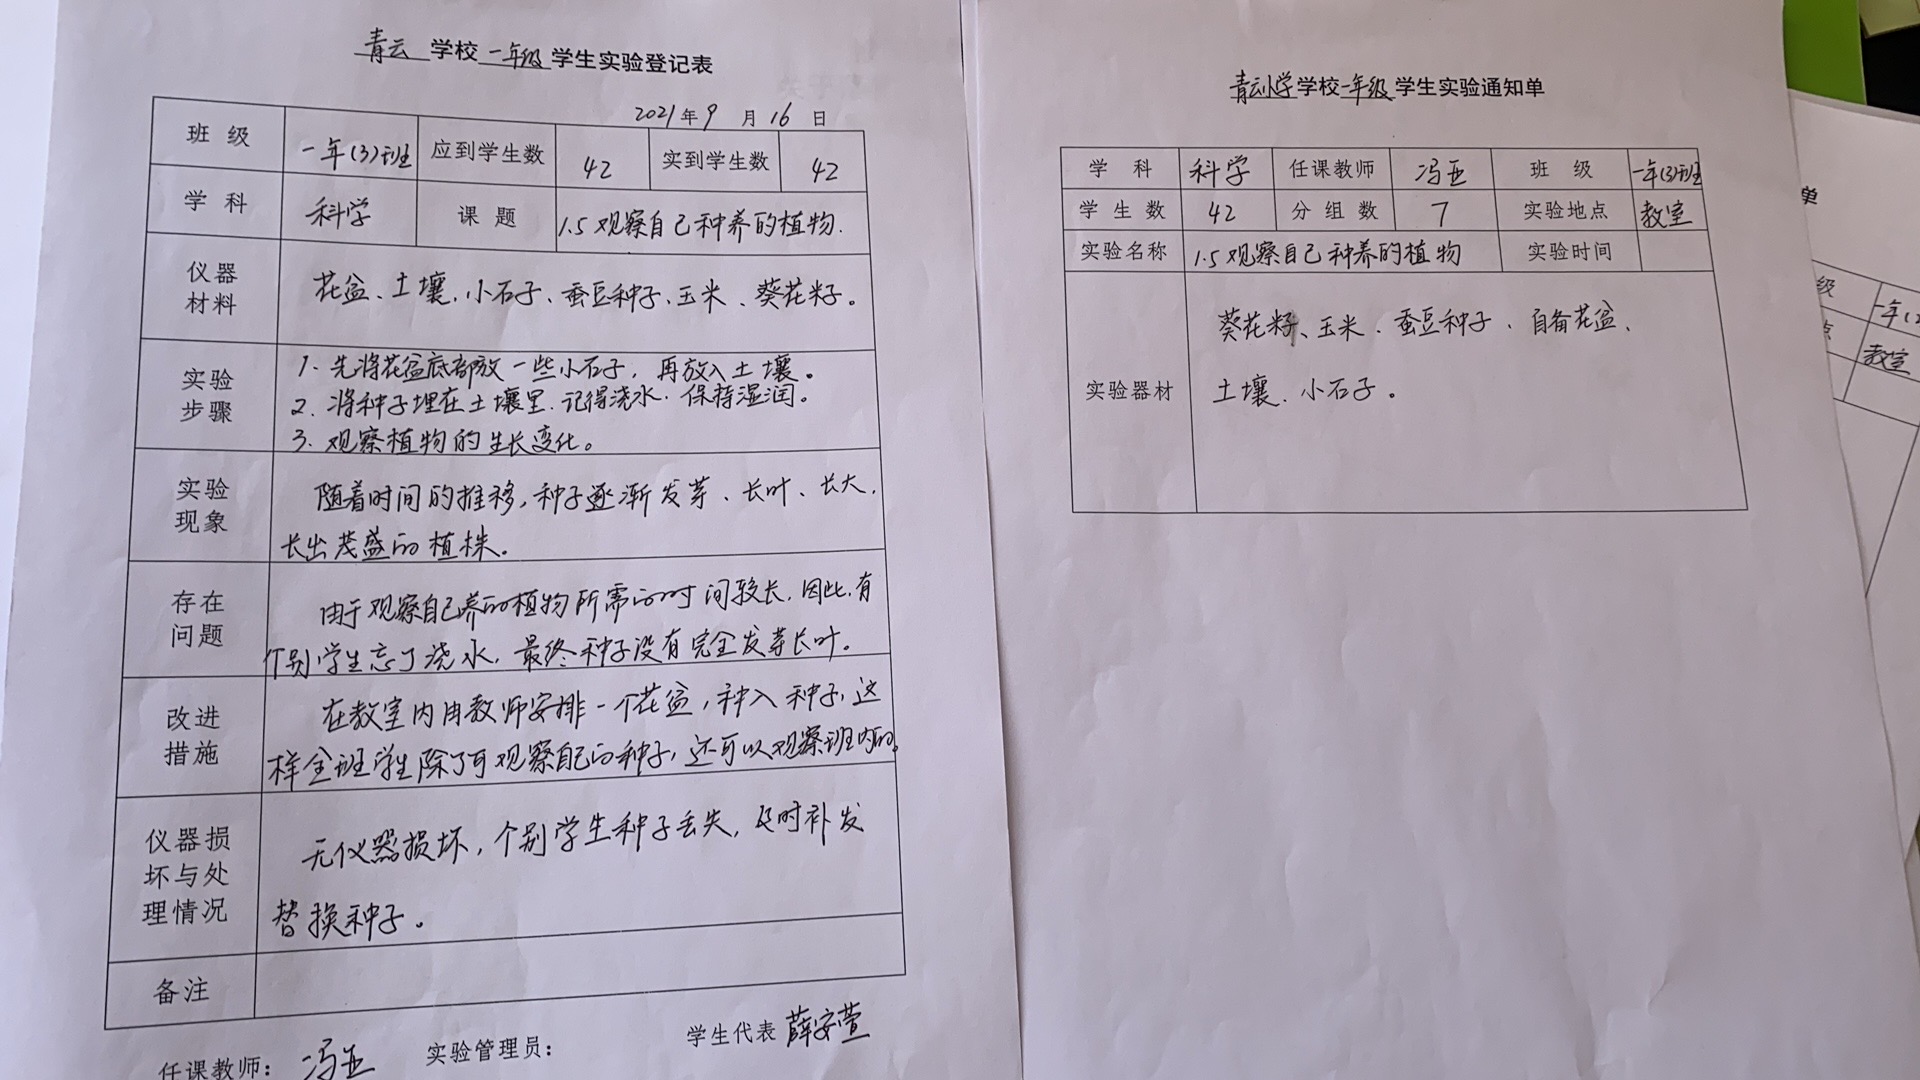 青云 学校 一年级 学生实验登记表
2021年9月16日
班级 一年(3)班 应到学生数 42 实到学生数 42
学科 科学 课题 1.5观察自己种养的植物.
仪器材料 花盆、土壤、小石子、蚕豆种子、玉米、葵花籽。
实验步骤 1.先将花盆底部放一些小石子，再放入土壤。
2.将种子埋在土壤里.记得浇水.保持湿润。
3.观察植物的生长变化。
实验现象 随着时间的推移，种子逐渐发芽、长叶、长大，
长出茂盛的植株。
存在问题 由于观察自己养的植物所需的时间较长.因此.有
个别学生忘了浇水，最终种子没有完全发芽长叶。
改进措施 在教室内由教师安排一个花盆，种入种子，这
样全班学生除了可观察自己的种子，还可以观察班内的。
仪器损坏与处理情况 无仪器损坏，个别学生种子丢失，及时补发
替换种子。
备注
任课教师：冯亚 实验管理员： 学生代表 薛安萱
青云小学学校一年级学生实验通知单
学科 科学 任课教师 冯亚 班级 一年(3)班
学生数 42 分组数 7 实验地点 教室
实验名称 1.5观察自己种养的植物 实验时间
实验器材 葵花籽、玉米、蚕豆种子、自备花盆、
土壤、小石子。
单
级 一年(2
点 教室